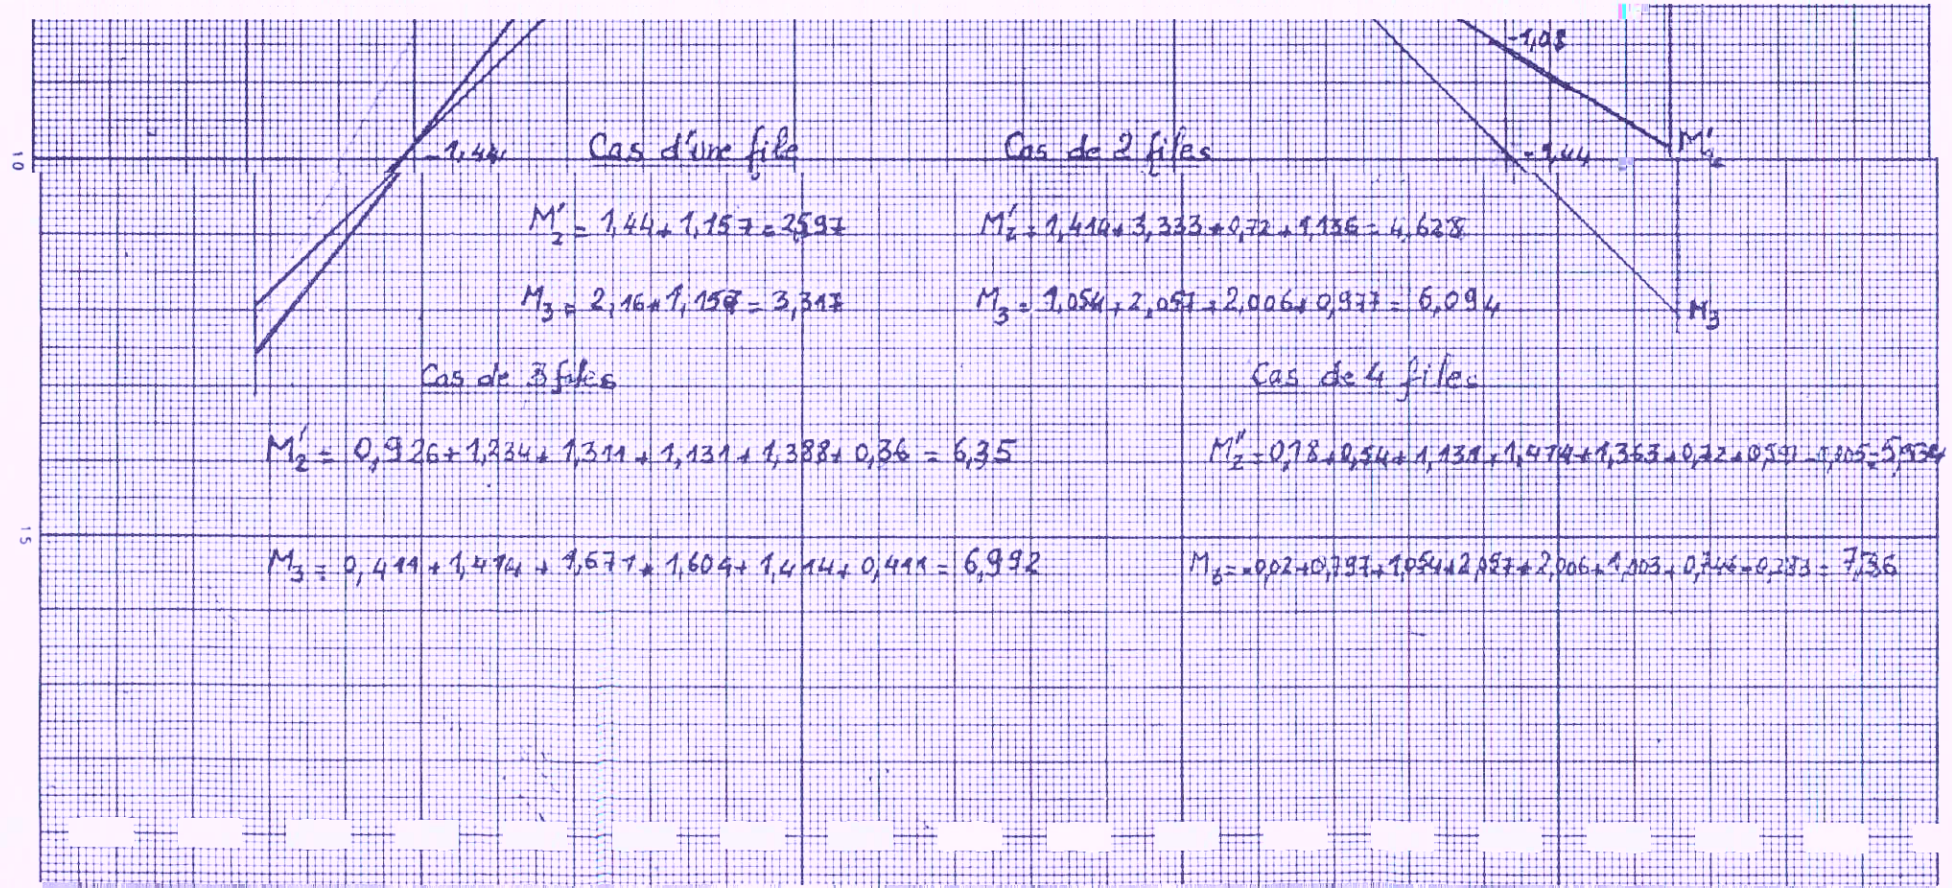 -1,08
10 -1,44 Cas d'une file Cas de 2 files -1,44 M'2
M'2 = 1,44 + 1,157 = 2,597 M'2 = 1,414 + 3,333 + 0,72 + 1,136 = 4,628
M3 = 2,16 + 1,157 = 3,317 M3 = 1,054 + 2,057 + 2,006 + 0,977 = 6,094 M3
Cas de 3 files Cas de 4 files
M'2 = 0,926 + 1,234 + 1,311 + 1,131 + 1,388 + 0,36 = 6,35 M''2 = 0,18 + 0,54 + 1,131 + 1,414 + 1,363 + 0,72 +
15
M3 = 0,411 + 1,414 + 1,671 + 1,604 + 1,414 + 0,411 = 6,992 M3 = -0,02 + 0,797 + 1,054 + 2,057 + 2,006 + 1,003 + 0,746 - 0,283 = 7,36